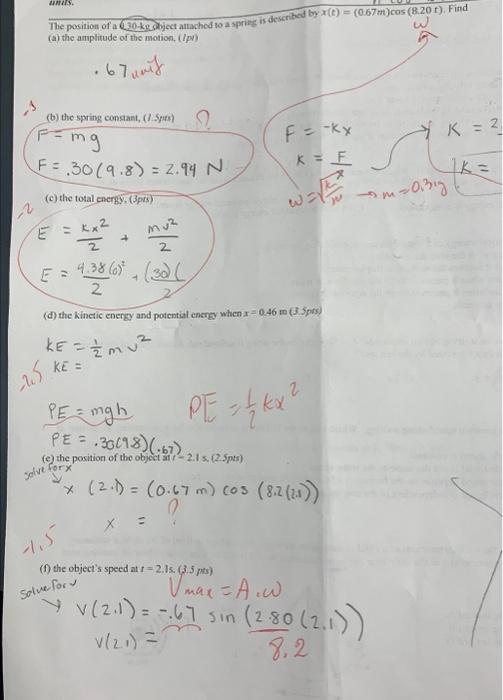 units.
The position of a 0.30-kg object attached to a spring is described by x(t) = (0.67m)cos (8.20 t). Find
(a) the amplitude of the motion, (1pt)
ω
.67 units
-1
(b) the spring constant, (1.5pts)
?
F = mg
F = .30(9.8) = 2.94 N
F = -Kx
K = F/x
K = 2
K =
ω = √k/m → m = 0.3 kg
-2
(c) the total energy, (3pts)
E = Kx²/2 + mv²/2
E = 4.38(0)²/2 + (30)(/2
(d) the kinetic energy and potential energy when x = 0.46 m (3.5pts)
KE = 1/2 m v²
-2.5
KE =
PE = mgh
PE = 1/2 kx²
PE = .30(98)(.67)
(e) the position of the object at t = 2.1 s, (2.5pts)
solve for x
x (2.1) = (0.67 m) cos (8.2(2.1))
x = ?
-1.5
(f) the object's speed at t = 2.1s. (3.5 pts)
Vmax = A.ω
solve for v
v(2.1) = -.67 sin (2.80(2.1))
v(2.1) =
8.2